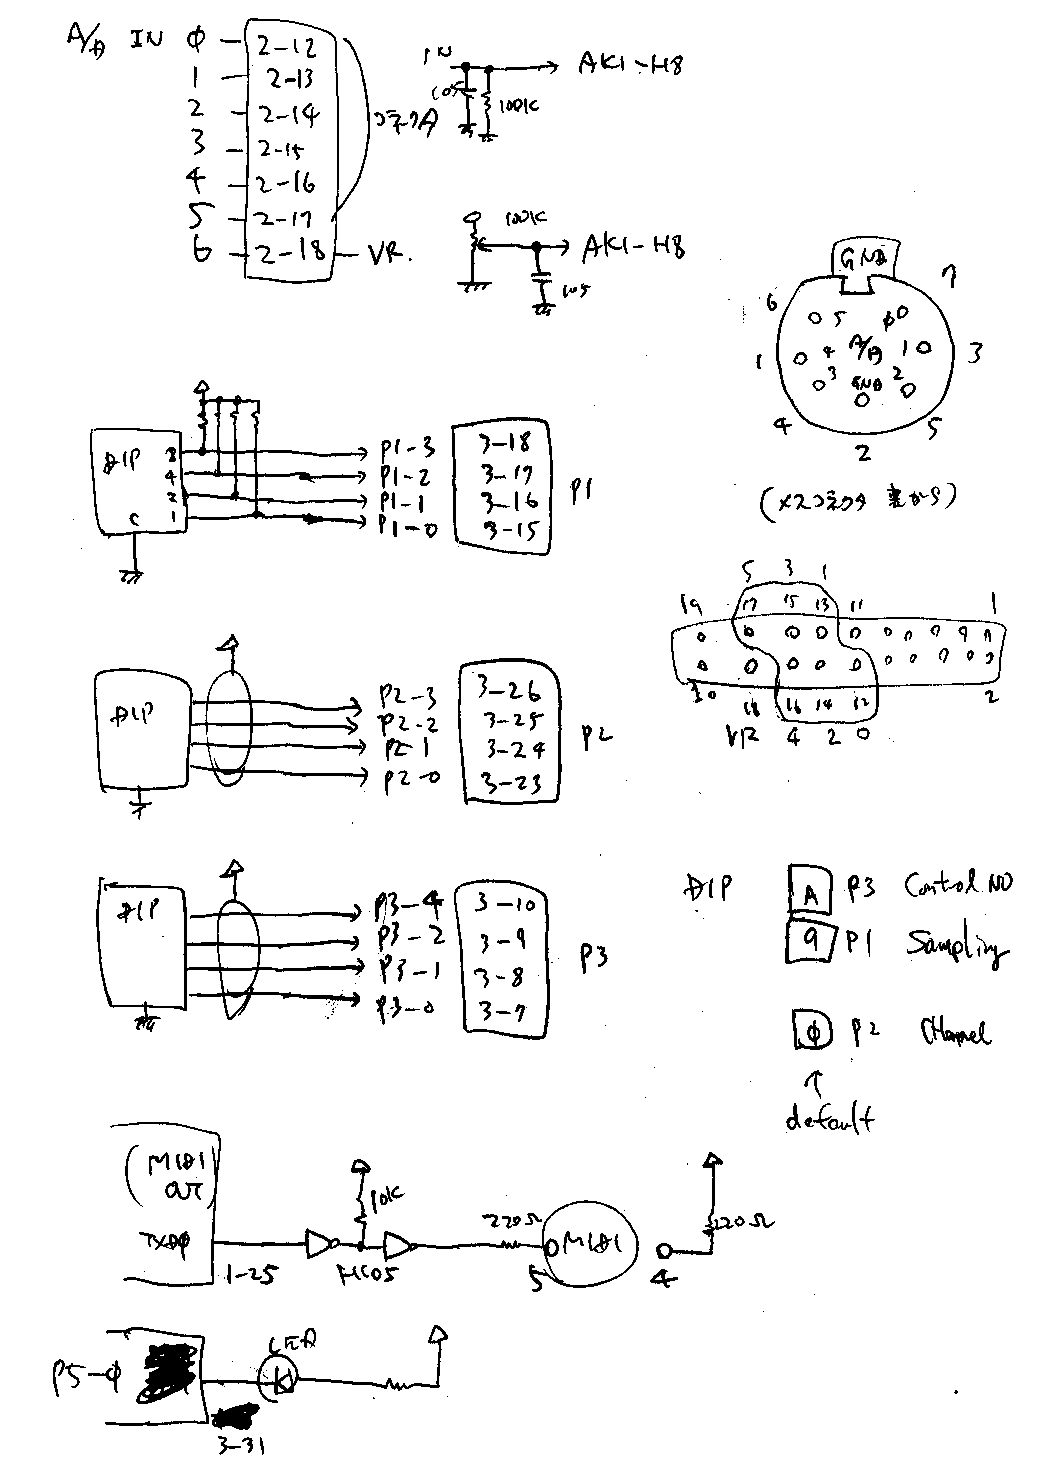 A/D IN 0 2-12
1 2-13
2 2-14
3 2-15
4 2-16
5 2-17
6 2-18 VR.
コネクタ
IN
105
100K
AKI-H8
100K
AKI-H8
105
GND
7
6
5 0
1 4 A/D 1 3
3 GND 2
4 5
2
(メスコネクタ 裏から)
DIP 8
4
2
C 1
P1-3 3-18
P1-2 3-17
P1-1 3-16
P1-0 3-15
P1
5 3 1
19 17 15 13 11 1
20 18 16 14 12 2
VR 4 2 0
DIP
P2-3 3-26
P2-2 3-25
P2-1 3-24
P2-0 3-23
P2
DIP
P3-4 3-10
P3-2 3-9
P3-1 3-8
P3-0 3-7
P3
DIP A P3 Control NO
9 P1 Sampling
0 P2 CHannel
↑
default
(MIDI
OUT)
TXD0
1-25
10K
HC05
220Ω
MIDI
5
4
220Ω
P5-0
LED
3-31